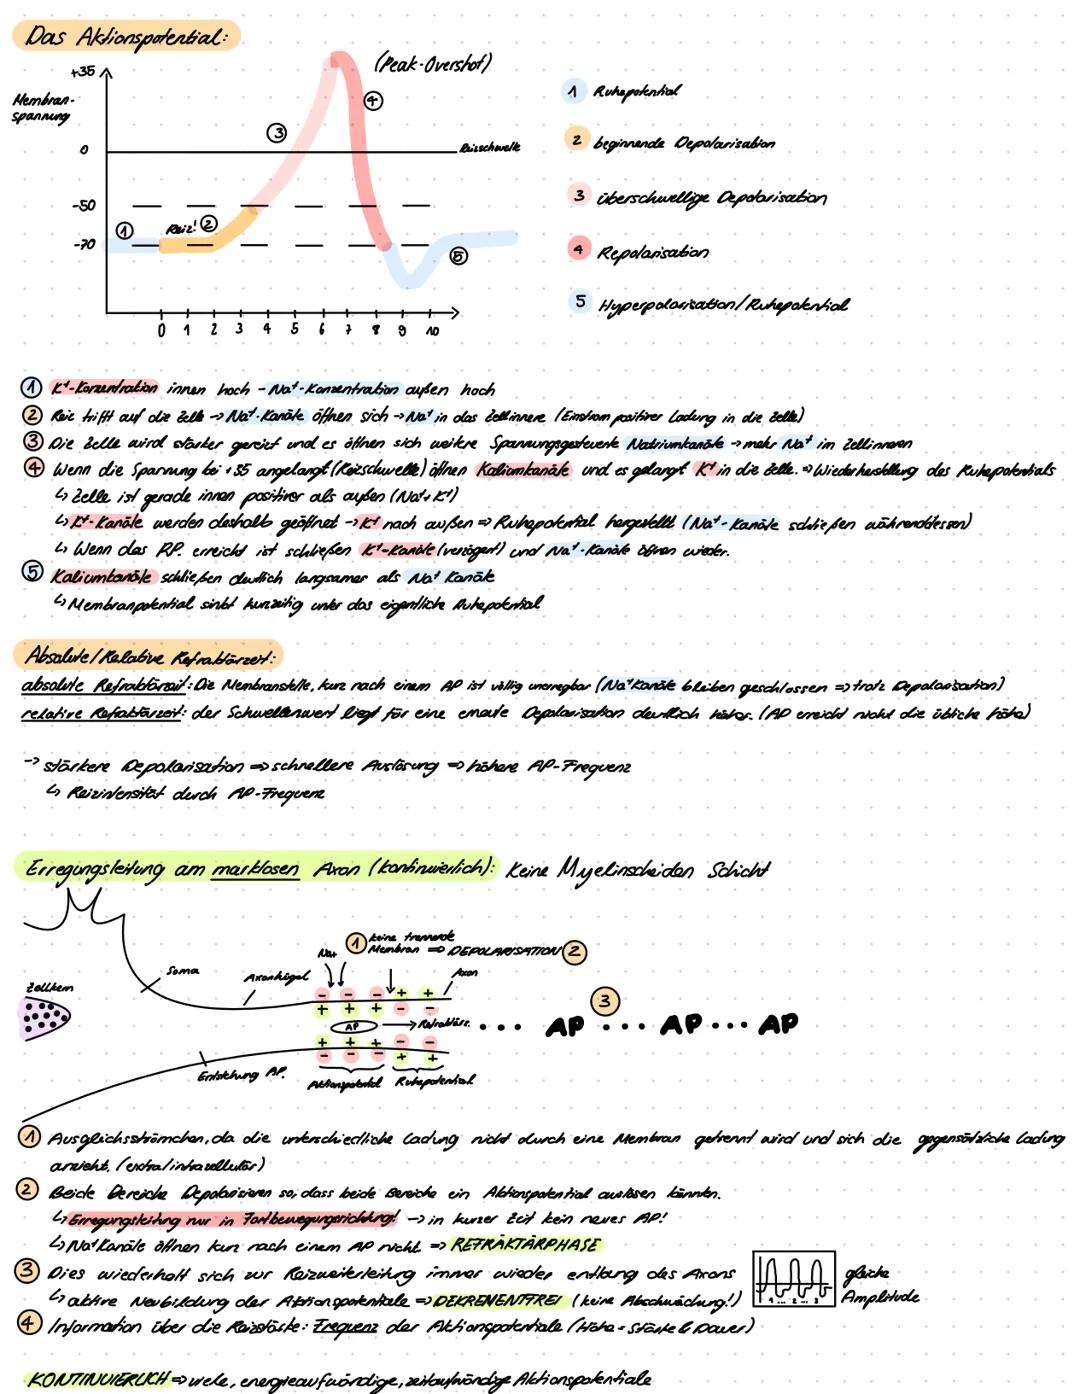 Das Aktionspotential:
(Peak-Overshof)
+35
Membran-
spannung
0
Reizschwelle
-50
-70
Reiz!
1
2
3
4
5
0 1 2 3 4 5 6 7 8 9 10
1 Ruhepotential
2 beginnende Depolarisation
3 überschwellige Depolarisation
4 Repolarisation
5 Hyperpolarisation/Ruhepotential
1 K+-Konzentration innen hoch - Na+-Konzentration außen hoch
2 Reiz trifft auf die Zelle → Na+-Kanäle öffnen sich → Na+ in das Zellinnere (Einstrom positiver Ladung in die Zelle)
3 Die Zelle wird stärker gereizt und es öffnen sich weitere Spannungsgesteuerte Natriumkanäle → mehr Na+ im Zellinneren
4 Wenn die Spannung bei +35 angelangt (Reizschwelle) öffnen Kaliumkanäle und es gelangt K+ in die Zelle. ⇒ Wiederherstellung des Ruhepotentials
↳ Zelle ist gerade innen positiver als außen (Na+ K+)
↳ K+-Kanäle werden deshalb geöffnet → K+ nach außen ⇒ Ruhepotential hergestellt (Na+-Kanäle schließen währenddessen)
↳ Wenn das RP. erreicht ist schließen K+-Kanäle (verzögert) und Na+-Kanäle öffnen wieder.
5 Kaliumkanäle schließen deutlich langsamer als Na+ Kanäle
↳ Membranpotential sinkt kurzzeitig unter das eigentliche Ruhepotential
Absolute/Relative Refraktärzeit:
absolute Refraktärzeit: Die Membranstelle, kurz nach einem AP ist völlig unerregbar (Na+Kanäle bleiben geschlossen ⇒ trotz Depolarisation)
relative Refraktärzeit: der Schwellenwert liegt für eine erneute Depolarisation deutlich höher. (AP erreicht nicht die übliche Höhe)
→ stärkere Depolarisation ⇒ schnellere Auslösung ⇒ höhere AP-Frequenz
↳ Reizintensität durch AP-Frequenz
Erregungsleitung am marklosen Axon (kontinuierlich): Keine Myelinscheiden Schicht
1 keine trennende
Membran ⇒ DEPOLARISATION 2
Na+
Soma
Axonhügel
Axon
Zellkern
- - - + +
+ + + - -
AP → Refraktärz. ... AP ... AP ... AP
3
+ + + - -
- - - + +
Entstehung AP.
Aktionspotential Ruhepotential
1 Ausgleichsströmchen, da die unterschiedliche Ladung nicht durch eine Membran getrennt wird und sich die gegensätzliche Ladung
anzieht. (extra/intrazellulär)
2 Beide Bereiche Depolarisieren so, dass beide Bereiche ein Aktionspotential auslösen könnten.
↳ Erregungsleitung nur in Fortbewegungsrichtung! → in kurzer Zeit kein neues AP!
↳ Na+Kanäle öffnen kurz nach einem AP nicht ⇒ REFRAKTÄRPHASE
3 Dies wiederholt sich zur Reizweiterleitung immer wieder entlang des Axons
↳ aktive Neubildung der Aktionspotentiale ⇒ DEKREMENTFREI (keine Abschwächung!)
1 ... 2 ... 3
gleiche
Amplitude
4 Information über die Reizstärke: Frequenz der Aktionspotentiale (Höhe = Stärke & Dauer)
KONTINUIERLICH ⇒ viele, energieaufwändige, zeitaufwändige Aktionspotentiale